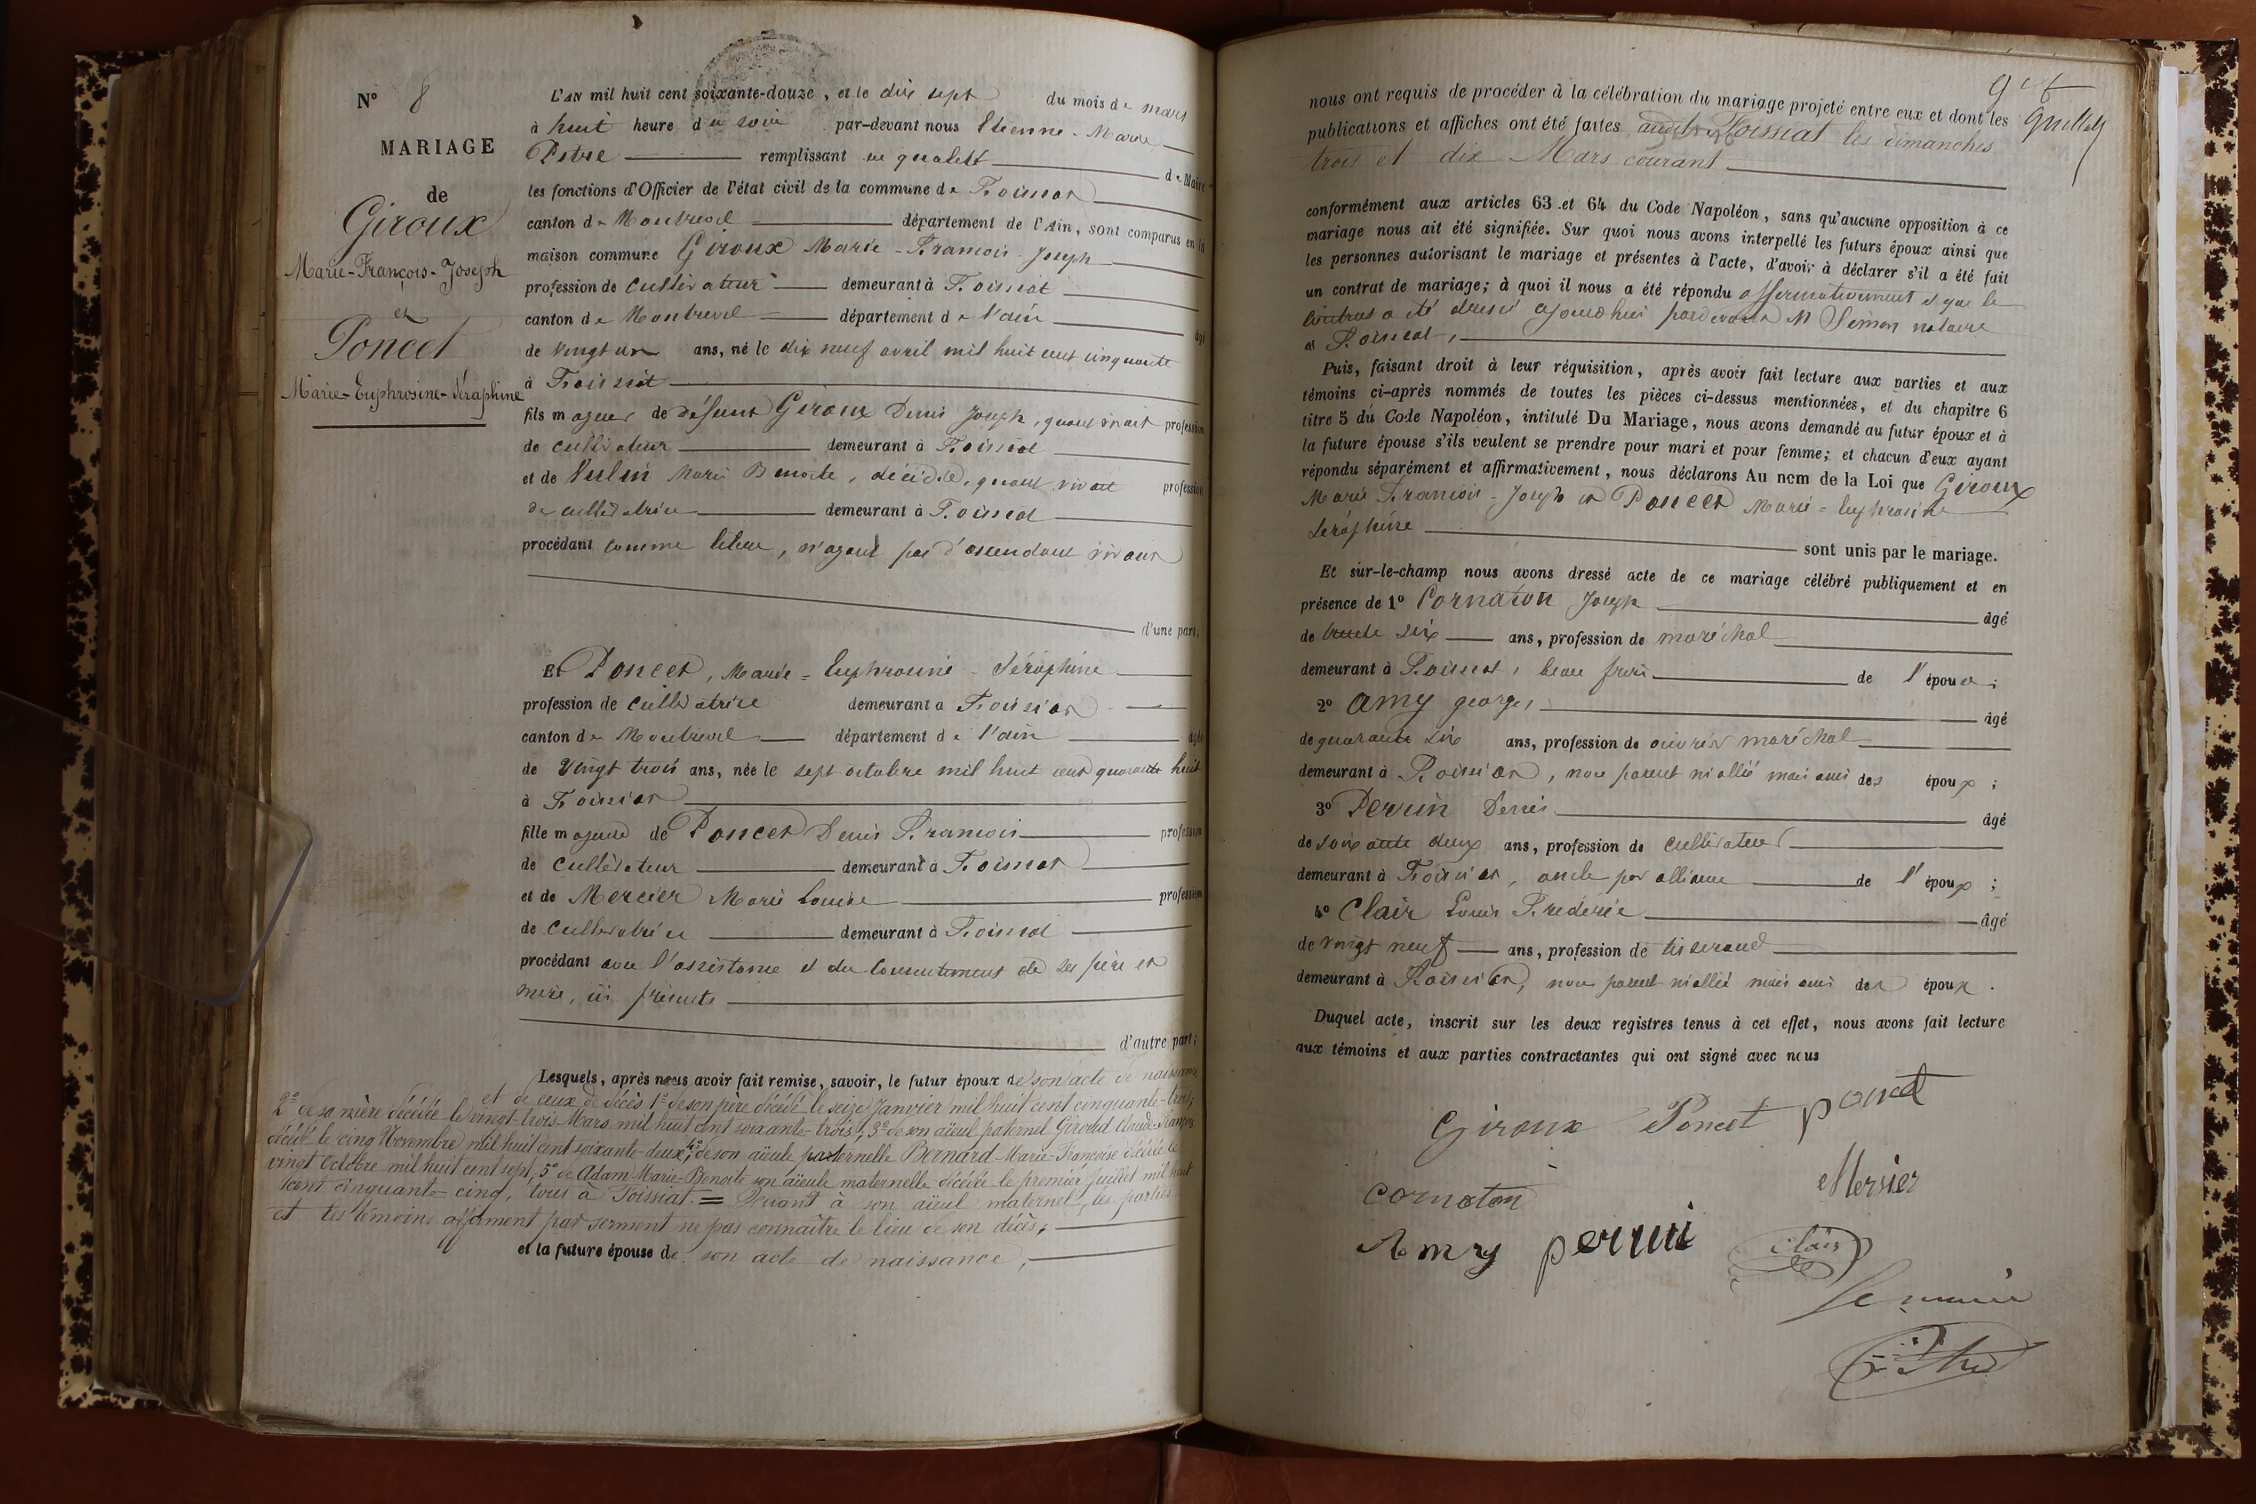 N° 8
MARIAGE
de
Giroux
Marie-François-Joseph
et
Poncet
Marie-Euphrosine-Séraphine
L'AN mil huit cent soixante-douze, et le dix sept du mois de mars
à huit heure du soir par-devant nous Etienne-Marie
remplissant en qualité de Maire
les fonctions d'Officier de l'état civil de la commune de Foissiat
canton de Montrevel département de l'Ain, sont comparus en la
maison commune Giroux Marie-François-Joseph
profession de cultivateur demeurant à Foissiat
canton de Montrevel département de l'ain âgé
de vingt un ans, né le dix neuf avril mil huit cent cinquante
à Foissiat
fils majeur de défunt Giroux Denis Joseph, quand vivait profession
de cultivateur demeurant à Foissiat
et de Vulin Marie Benoite, décédée, quand vivait profession
de cultivatrice demeurant à Foissiat
procédant comme libre, n'ayant pas d'ascendant vivant
d'une part,
Et Poncet, Marie-Euphrosine-Séraphine
profession de cultivatrice demeurant à Foissiat
canton de Montrevel département de l'ain âgée
de vingt trois ans, née le sept octobre mil huit cent quarante huit
à Foissiat
fille majeure de Poncet Denis François profession
de cultivateur demeurant à Foissiat
et de Mercier Marie Louise profession
de cultivatrice demeurant à Foissiat
procédant avec l'assistance et du consentement de ses père et
mère, ici présents
d'autre part;
Lesquels, après nous avoir fait remise, savoir, le futur époux de son acte de naissance
et de ceux de décès 1° de son père décédé le seize Janvier mil huit cent cinquante-trois,
2° de sa mère décédée le vingt-trois Mars mil huit cent soixante-trois, 3° de son aïeul paternel Giroud Claude-François
décédé le cinq Novembre mil huit cent soixante-deux, 4° de son aïeule paternelle Bernard Marie-Françoise décédée le
vingt Octobre mil huit cent sept, 5° de Adam Marie-Benoite son aïeule maternelle décédée le premier Juillet mil huit
cent cinquante-cinq, tous à Foissiat. = Quant à son aïeul maternel, les parties
et les témoins affirment par serment ne pas connaître le lieu de son décès;
et la future épouse de son acte de naissance,
nous ont requis de procéder à la célébration du mariage projeté entre eux et dont les
publications et affiches ont été faites Foissiat les dimanches
trois et dix Mars courant
conformément aux articles 63 et 64 du Code Napoléon, sans qu'aucune opposition à ce
mariage nous ait été signifiée. Sur quoi nous avons interpellé les futurs époux ainsi que
les personnes autorisant le mariage et présentes à l'acte, d'avoir à déclarer s'il a été fait
un contrat de mariage; à quoi il nous a été répondu affirmativement et que le
contrat a été dressé aujourd'hui pardevant M Simon notaire
à Foissiat,
Puis, faisant droit à leur réquisition, après avoir fait lecture aux parties et aux
témoins ci-après nommés de toutes les pièces ci-dessus mentionnées, et du chapitre 6
titre 5 du Code Napoléon, intitulé Du Mariage, nous avons demandé au futur époux et à
la future épouse s'ils veulent se prendre pour mari et pour femme; et chacun d'eux ayant
répondu séparément et affirmativement, nous déclarons Au nom de la Loi que Giroux
Marie François-Joseph et Poncet Marie-Euphrosine
Séraphine sont unis par le mariage.
Et sur-le-champ nous avons dressé acte de ce mariage célébré publiquement et en
présence de 1° Cornaton Joseph âgé
de trente six ans, profession de maréchal
demeurant à Foissiat, beau frère de l'épouse;
2° Amy georges âgé
de quarante six ans, profession de ouvrier maréchal
demeurant à Foissiat, non parent ni allié mais ami des époux;
3° Perrin Denis âgé
de soixante deux ans, profession de cultivateur
demeurant à Foissiat, oncle par alliance de l'époux;
4° Clair Louis Frédéric âgé
de vingt neuf ans, profession de tisserand
demeurant à Foissiat, non parent ni allié mais ami des époux.
Duquel acte, inscrit sur les deux registres tenus à cet effet, nous avons fait lecture
aux témoins et aux parties contractantes qui ont signé avec nous
Giroux Poncet poncet
Cornaton Mersier
Amy perrin Clair
Le maire